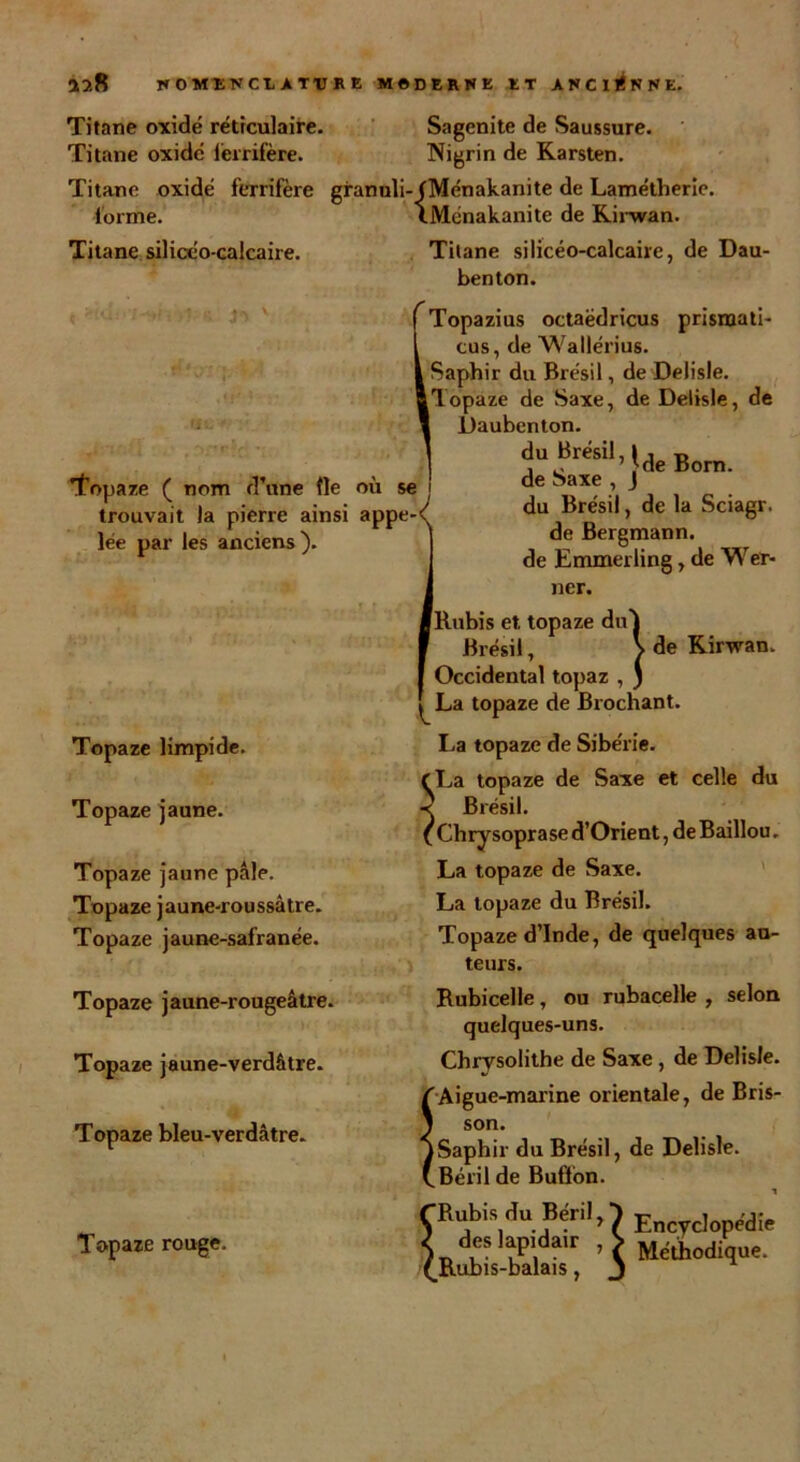 228 NOMENCLATURE MODERNE ET ANCIENNE.
Titane oxidé réticulaire. Sagenite de Saussure.
Titane oxidé ferrifère. Nigrin de Karsten.
Titane oxidé ferrifère granuli- Ménakanite de Lamétherie.
forme. Ménakanite de Kirwan.
Titane silicéo-calcaire. Titane silicéo-calcaire, de Dau-
benton.
Topaze ( nom d'une île où se
trouvait la pierre ainsi appe-
lée par les anciens ).
Topazius octaëdricus prismati-
cus, de Wallérius.
Saphir du Brésil, de Delisle.
Topaze de Saxe, de Delisle, de
Daubenton.
du Brésil,
de Saxe , } de Born.
du Brésil, de la Sciagr.
de Bergmann.
de Emmerling, de Wer-
ner.
Rubis et topaze du
Brésil, } de Kirwan.
Occidental topaz ,
La topaze de Brochant.
Topaze limpide. La topaze de Sibérie.
Topaze jaune. La topaze de Saxe et celle du
Brésil.
Chrysoprase d'Orient, de Baillou.
Topaze jaune pâle. La topaze de Saxe.
Topaze jaune-roussâtre. La topaze du Brésil.
Topaze jaune-safranée. Topaze d'Inde, de quelques au-
teurs.
Topaze jaune-rougeâtre. Rubicelle, ou rubacelle , selon
quelques-uns.
Topaze jaune-verdâtre. Chrysolithe de Saxe, de Delisle.
Topaze bleu-verdâtre. Aigue-marine orientale, de Bris-
son.
Saphir du Brésil, de Delisle.
Béril de Buffon.
Topaze rouge. Rubis du Béril,
des lapidair , } Encyclopédie
Rubis-balais, Méthodique.